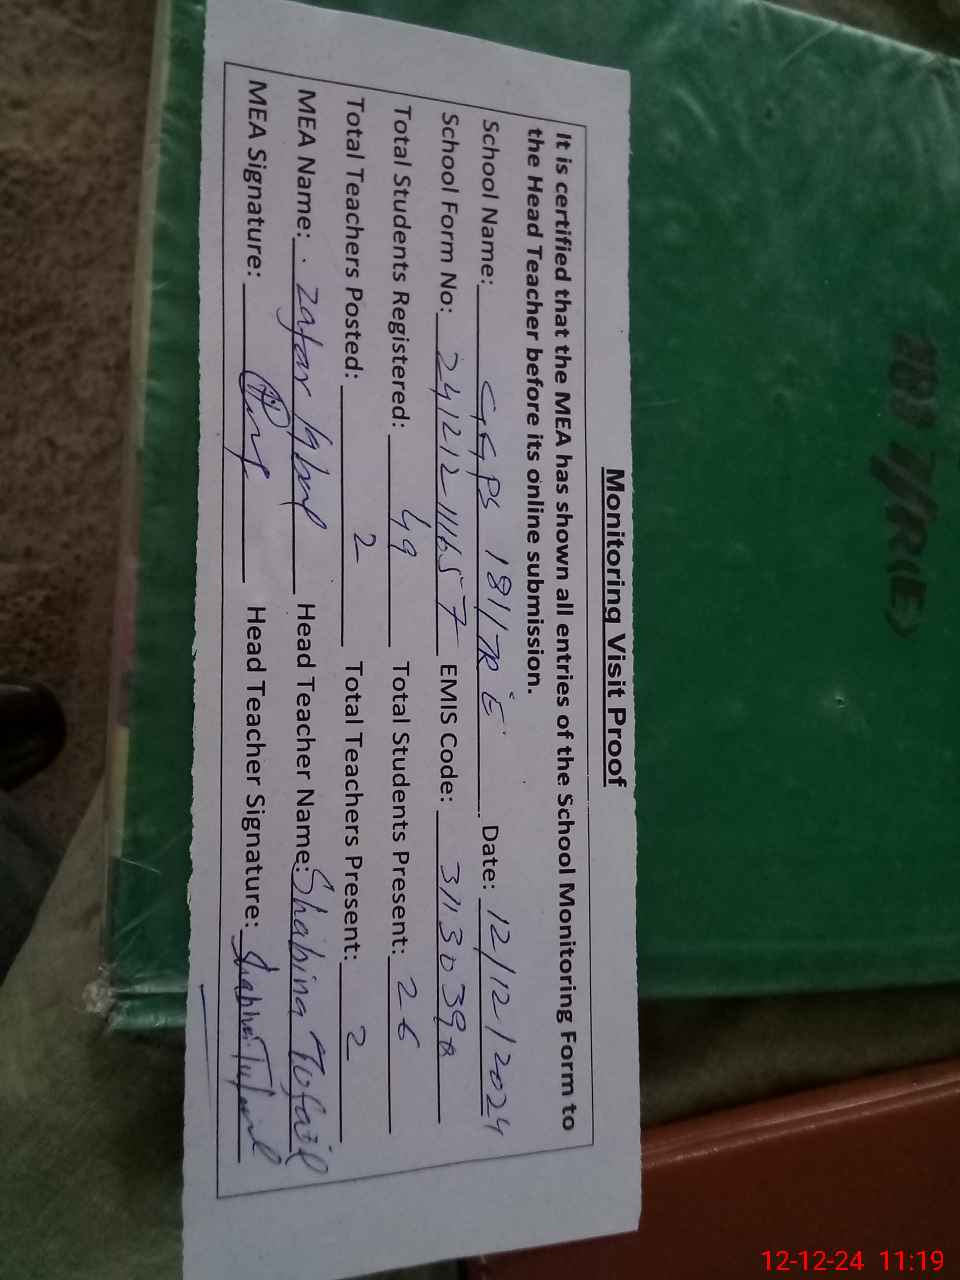 Monitoring Visit Proof
It is certified that the MEA has shown all entries of the School Monitoring Form to
the Head Teacher before its online submission.
School Name: GGPS 181/7R E Date: 12/12/2024
School Form No: 241212-111657 EMIS Code: 31130398
Total Students Registered: 49 Total Students Present: 26
Total Teachers Posted: 2 Total Teachers Present: 2
MEA Name: Zafar Iqbal Head Teacher Name: Shabina Tofail
MEA Signature: Head Teacher Signature: Shabina Tufail
7/R(E)
12-12-24 11:19